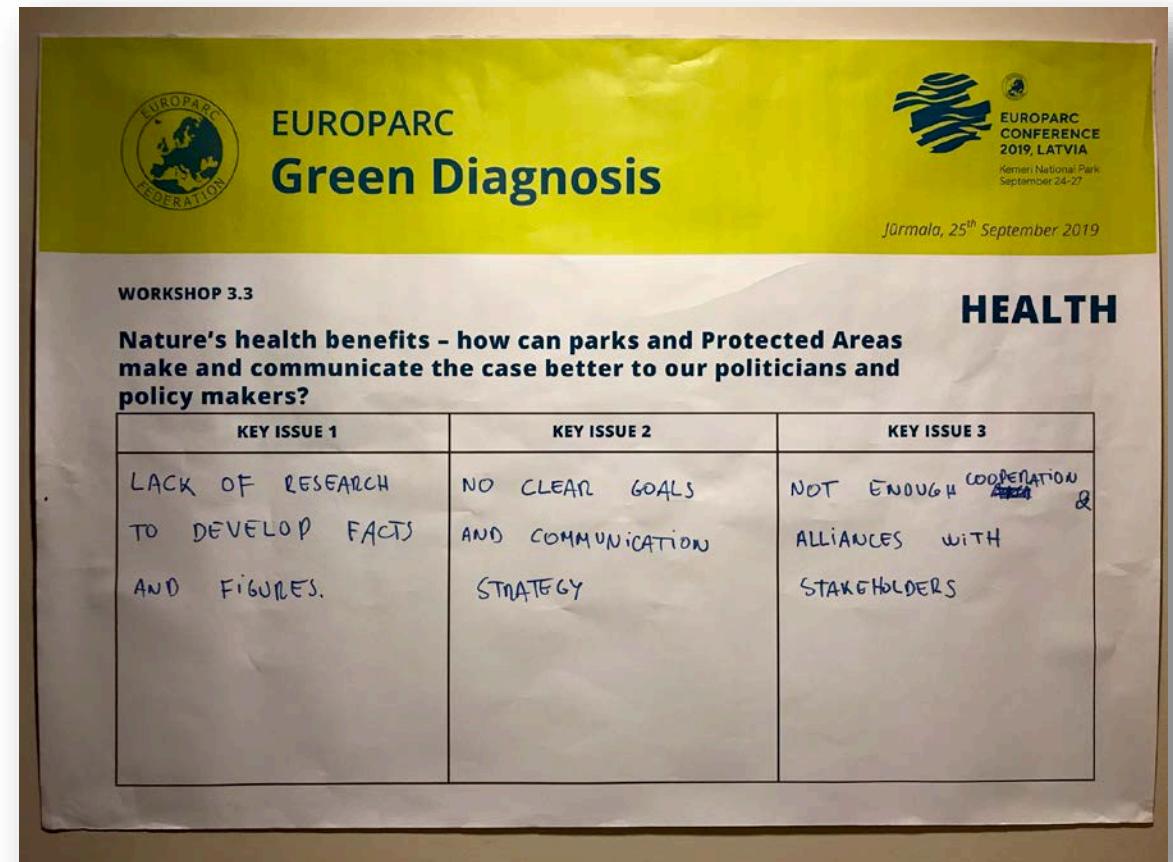 EUROPARC
FEDERATION
EUROPARC
Green Diagnosis
EUROPARC
CONFERENCE
2019, LATVIA
Kemeri National Park
September 24-27
Jūrmala, 25th September 2019
WORKSHOP 3.3
HEALTH
Nature's health benefits – how can parks and Protected Areas
make and communicate the case better to our politicians and
policy makers?
KEY ISSUE 1
KEY ISSUE 2
KEY ISSUE 3
LACK OF RESEARCH
TO DEVELOP FACTS
AND FIGURES.
NO CLEAR GOALS
AND COMMUNICATION
STRATEGY
NOT ENOUGH COOPERATION &
ALLIANCES WITH
STAKEHOLDERS